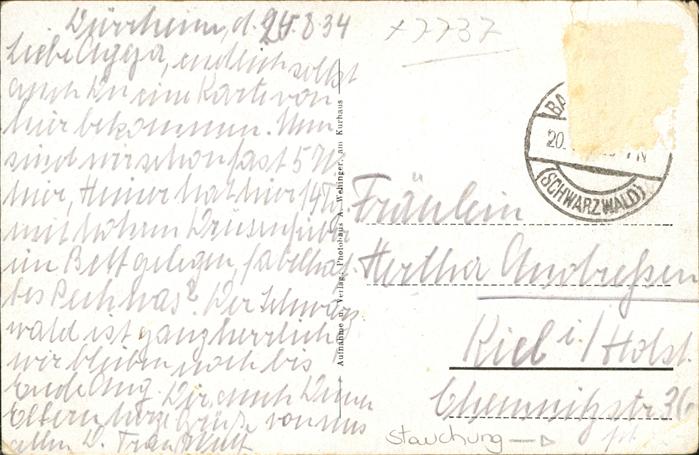 Dürrheim, d. 24.8.34
Liebe Agga, endlich sollst
auch Du eine Karte von
hier bekommen. Nun
sind wir schon fast 5 W
hier, Heiner hat hier 14 T
mit hohem Drüsenfieb
im Bett gelegen, fabelhaf
tes Pech was? Der Schwarz
wald ist ganz herrlich
wir bleiben noch bis
Ende Aug. Dir auch Deinen
Eltern herzl. Grüße von uns
allen D.
Aufnahme u. Verlag: Photohaus A. Wehinger, am Kurhaus
+7737
BA
20.
7 N
(SCHWARZWALD)
Fräulein
Hertha Andreßen
Kiel i/Holst
Chemnitzstr. 36
Stauchung